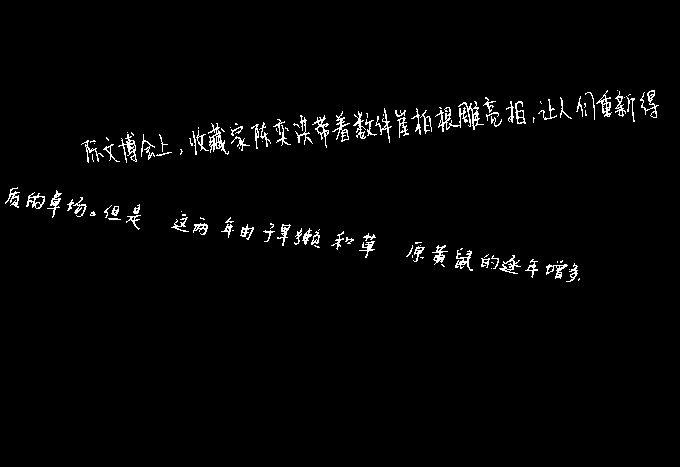 际文博会上,收藏家陈奕洪带着数件崖柏根雕亮相,让人们重新得
质的草场。但是 这两年由于旱獭和草 原黄鼠的逐年增多